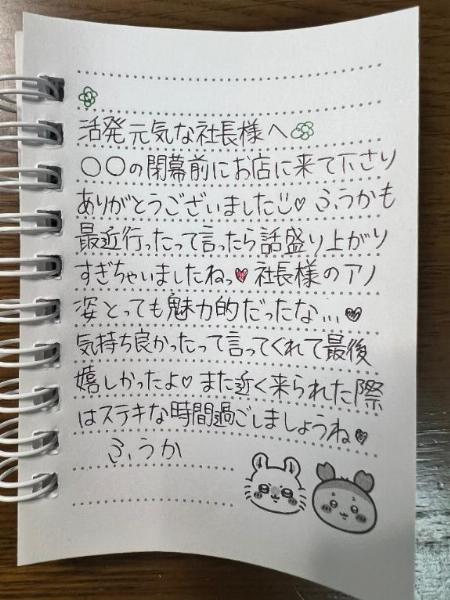 活発元気な社長様へ
〇〇の閉幕前にお店に来て下さり
ありがとうございました♡ ふうかも
最近行ったって言ったら話盛り上がり
すぎちゃいましたねっ♥ 社長様のアノ
姿とっても魅力的だったな...♥
気持ち良かったって言ってくれて最後
嬉しかったよ♡ また近く来られた際
はステキな時間過ごしましょうね♥
ふうか